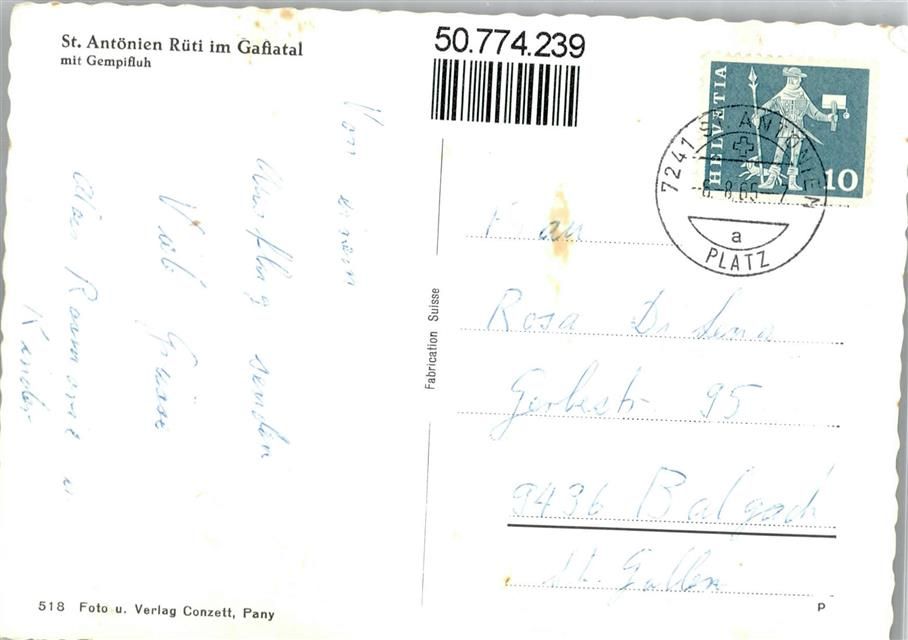 St. Antönien Rüti im Gafiatal
mit Gempifluh
50.774.239
HELVETIA
10
7241 ST. ANTÖNIEN
-8.8.65-7
a
PLATZ
Von einem
Ausflug senden
Viele Grüsse
u
Kinder
Frau
Rosa
Gerbestr. 95
9436 Balgach
St. Gallen
Fabrication Suisse
518 Foto u. Verlag Conzett, Pany
P